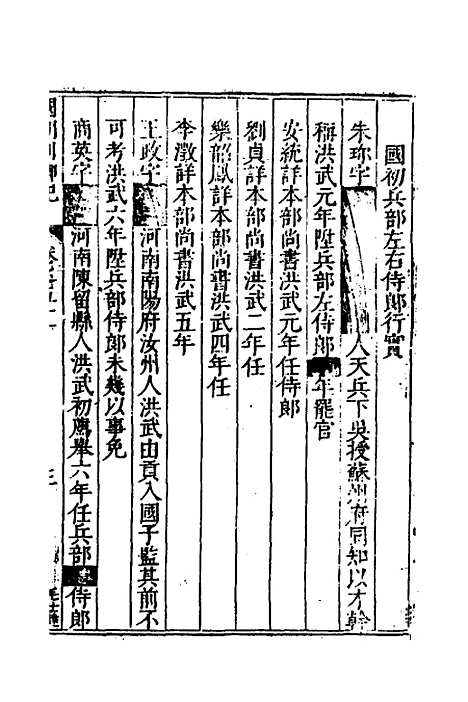 國初兵部左右侍郎行實
朱珎字人天兵下吳授蘇州府同知以才幹
稱洪武元年陞兵部左侍郎年罷官
安統詳本部尚書洪武元年任侍郎
劉貞詳本部尚書洪武二年任
樂韶鳳詳本部尚書洪武四年任
李澂詳本部尚書洪武五年
王政字河南南陽府汝州人洪武由貢入國子監其前不
可考洪武六年陞兵部侍郎未幾以事免
商英字河南陳留縣人洪武初薦舉六年任兵部侍郎